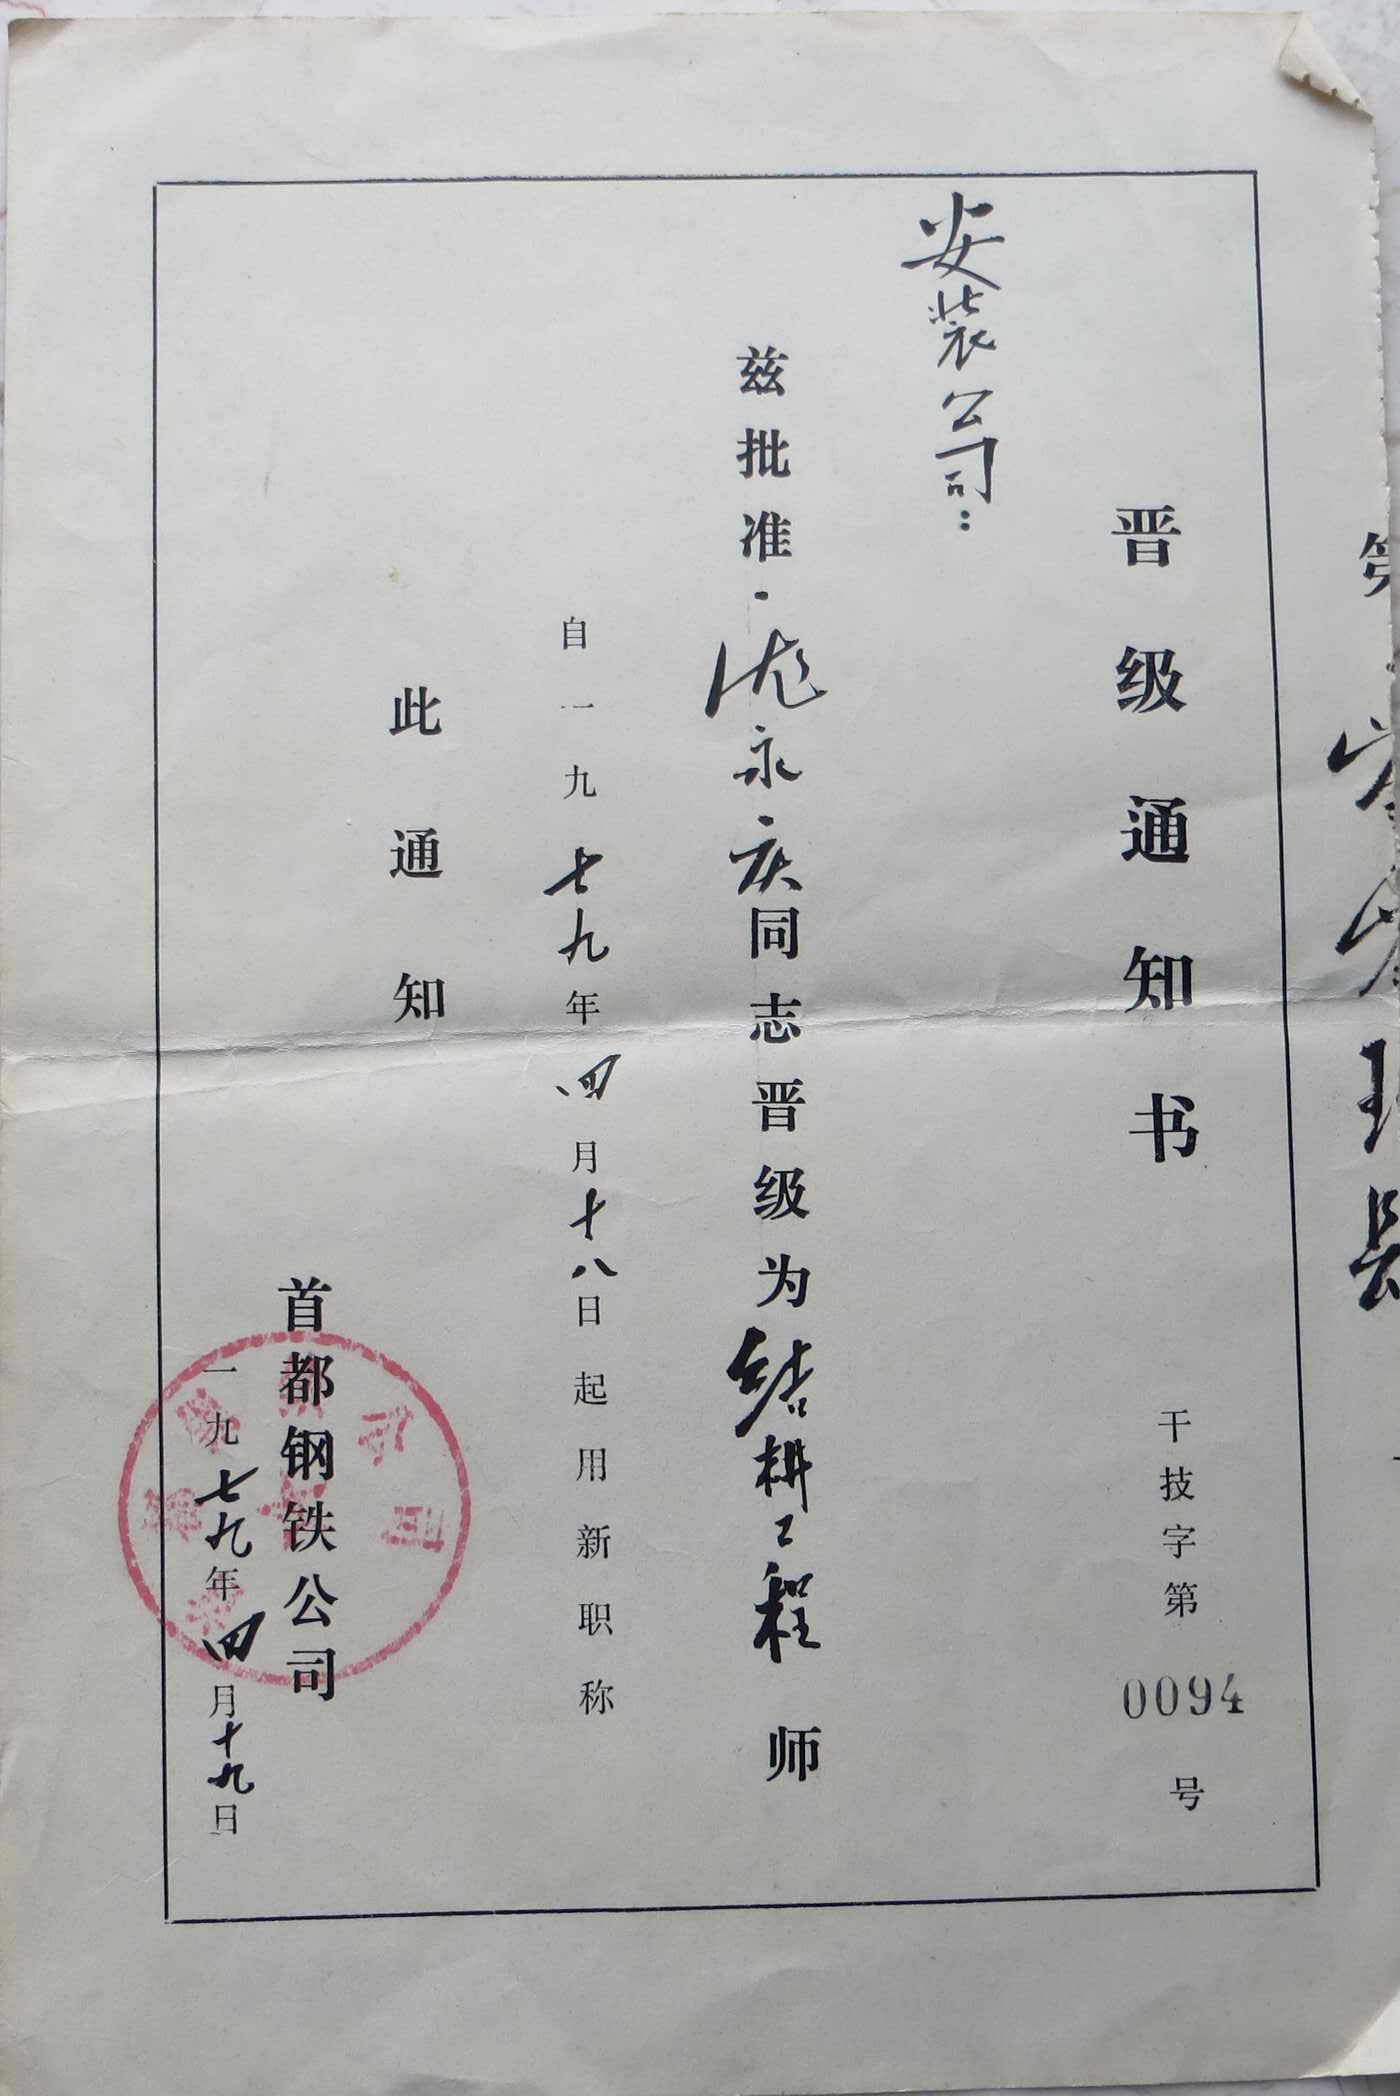 晋级通知书
干技字第 0094 号
安装公司：
兹批准 永庆同志晋级为结构工程 师
自一九七九年四月十八日起用新职称
此通知
首都钢铁公司
一九七九年四月十九日